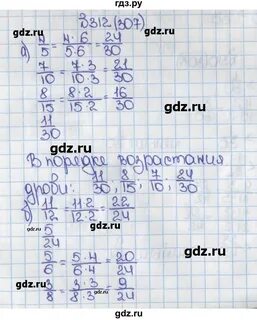 гдз.ру
З312(307)
а) 4/5 = 4·6/5·6 = 24/30
7/10 = 7·3/10·3 = 21/30
8/15 = 8·2/15·2 = 16/30
11/30
В порядке возрастания
дроби: 11/30, 8/15, 7/10, 24/30
б) 11/12 = 11·2/12·2 = 22/24
5/24
5/6 = 5·4/6·4 = 20/24
3/8 = 3·3/8·3 = 9/24